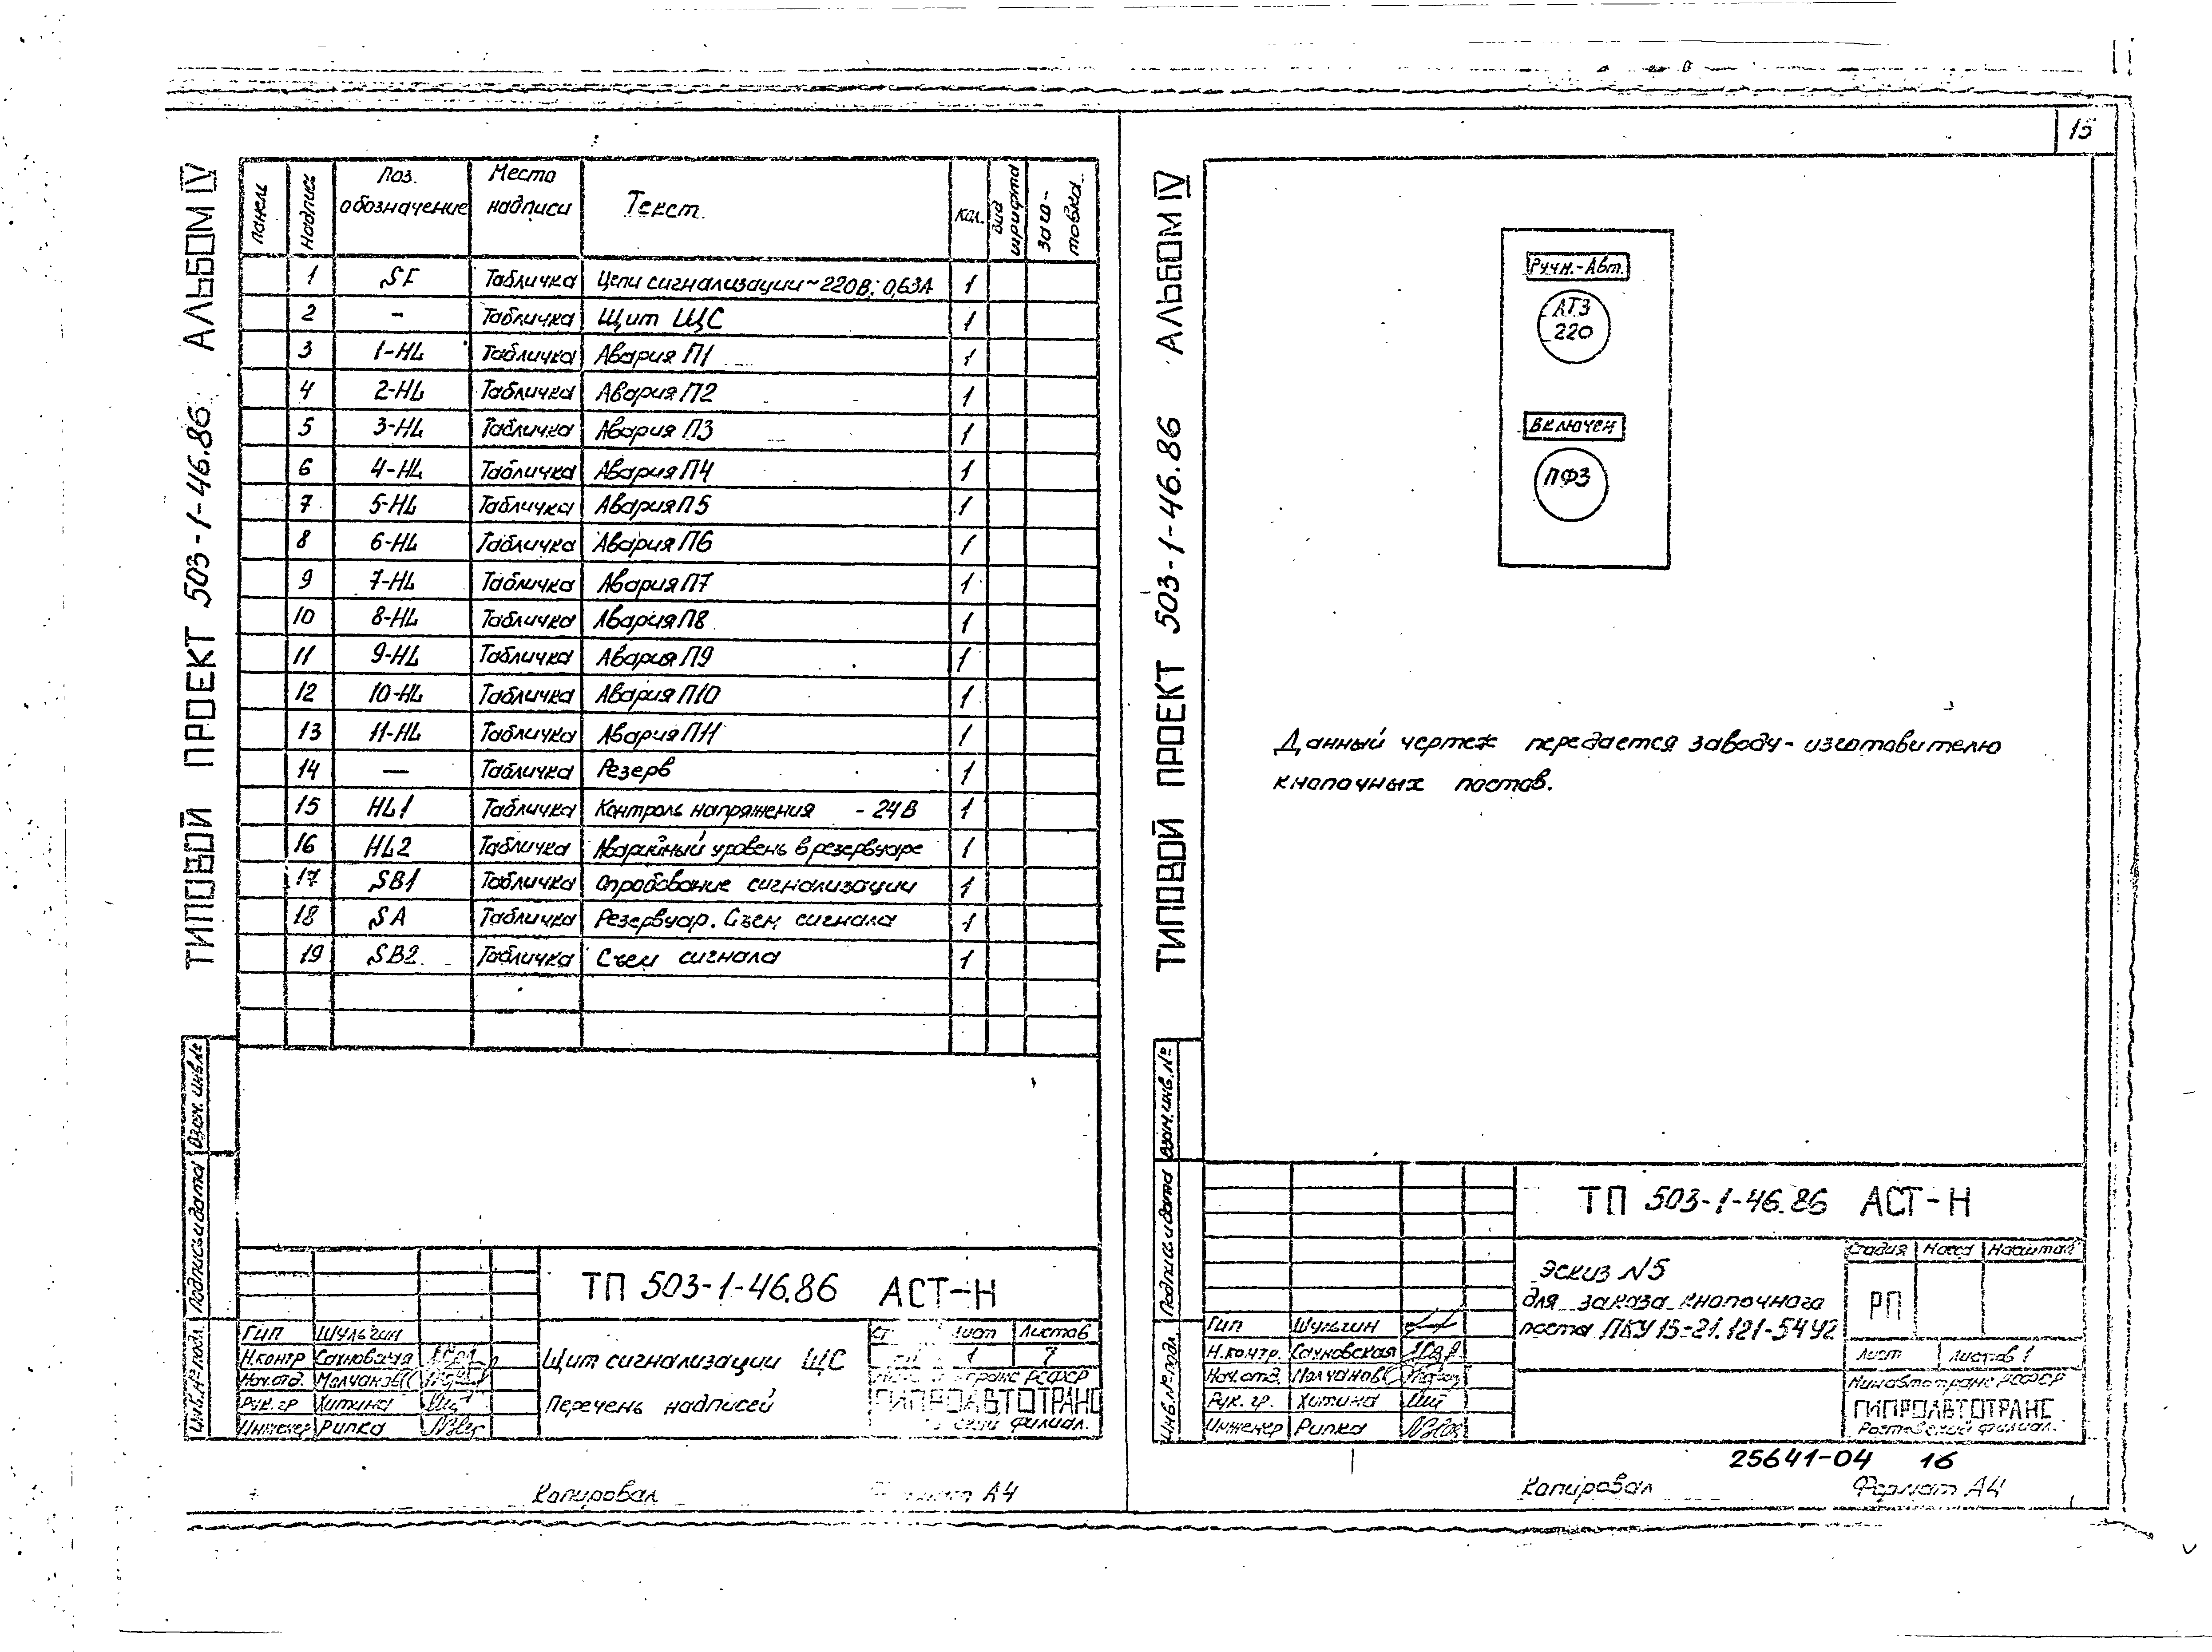 15
ТИПОВОЙ ПРОЕКТ 503-1-46.86 АЛЬБОМ IV
Панель Надпись Поз. обозначение Место надписи Текст Кол. Вид шрифта Заготовка
1 SF Табличка Цепи сигнализации ~220В; 0,63А 1
2 – Табличка Щит ЩС 1
3 1-HL Табличка Авария П1 1
4 2-HL Табличка Авария П2 1
5 3-HL Табличка Авария П3 1
6 4-HL Табличка Авария П4 1
7 5-HL Табличка Авария П5 1
8 6-HL Табличка Авария П6 1
9 7-HL Табличка Авария П7 1
10 8-HL Табличка Авария П8 1
11 9-HL Табличка Авария П9 1
12 10-HL Табличка Авария П10 1
13 11-HL Табличка Авария П11 1
14 — Табличка Резерв 1
15 HL1 Табличка Контроль напряжения - 24В 1
16 HL2 Табличка Аварийный уровень в резервуаре 1
17 SB1 Табличка Опробование сигнализации 1
18 SA Табличка Резервуар. Съем сигнала 1
19 SB2 Табличка Съем сигнала 1
Инв.№ подл. Подпись и дата Взам. инв.№
ТП 503-1-46.86 АСТ-Н
Гип Шульгин
Н.контр Сахновская
Нач.отд. Молчанов
Рук. гр Хитина
Инженер Рипка
Щит сигнализации ЩС
Перечень надписей
Ст Лист Листов
1 7
РСФСР
ГИПРОАВТОТРАНС
филиал.
Копировал
А4
ТИПОВОЙ ПРОЕКТ 503-1-46.86 АЛЬБОМ IV
Ручн.-Авт.
220
Включен
Данный чертеж передается заводу-изготовителю
кнопочных постов.
Инв.№ подл. Подпись и дата Взам.инв.№
ТП 503-1-46.86 АСТ-Н
Гип Шульгин
Н.контр. Сахновская
Нач.отд. Молчанов
Рук. гр. Хитина
Инженер Рипка
Эскиз N5
для заказа кнопочного
поста ПКУ15-21.121-54У2
Стадия Масса Масштаб
РП
Лист Листов 1
Минавтотранс РСФСР
ГИПРОАВТОТРАНС
Ростовский филиал.
25641-04 16
Копировал
Формат А4